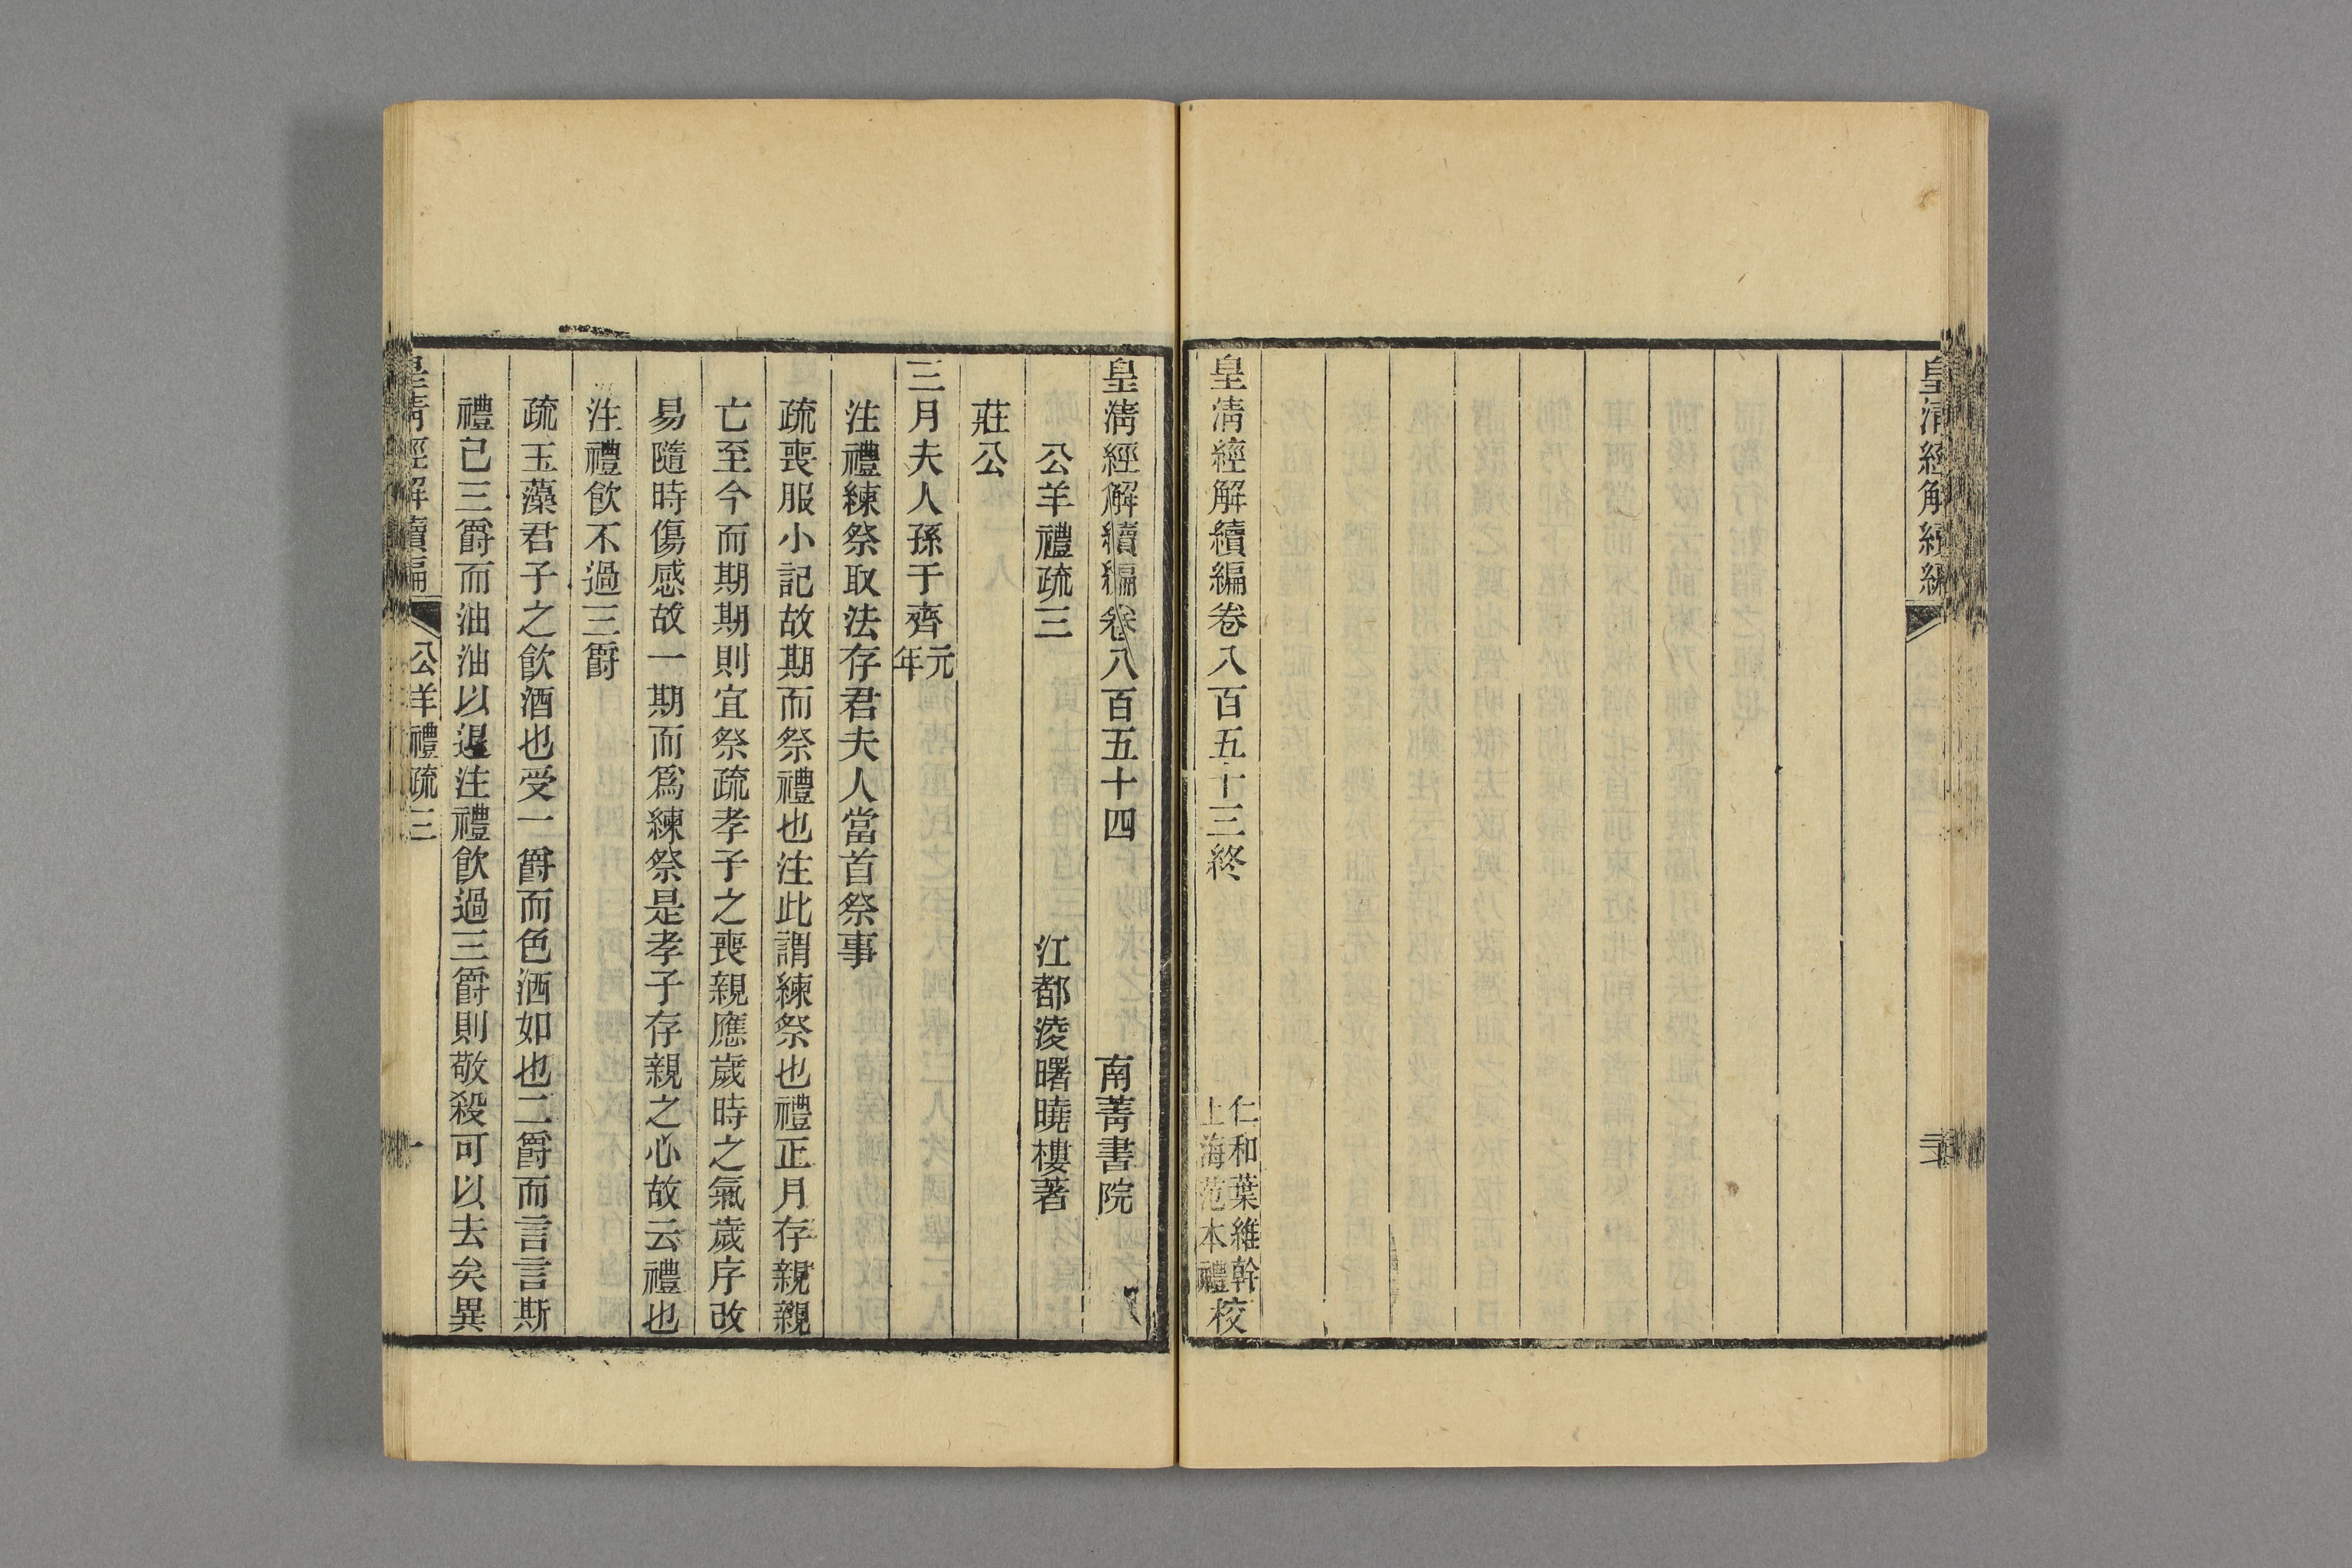 皇清經解續編
皇清經解續編卷八百五十三終
仁和葉維幹
上海范本禮
校
皇清經解續編卷八百五十四
南菁書院
公羊禮疏三
江都淩曙曉樓著
莊公
三月夫人孫于齊元年
注禮練祭取法存君夫人當首祭事
疏喪服小記故期而祭禮也注此謂練祭也禮正月存親親
亡至今而期期則宜祭疏孝子之喪親應歲時之氣歲序改
易隨時傷感故一期而爲練祭是孝子存親之心故云禮也
注禮飮不過三爵
疏玉藻君子之飮酒也受一爵而色洒如也二爵而言言斯
禮已三爵而油油以退注禮飮過三爵則敬殺可以去矣異
皇清經解續編
公羊禮疏三
一